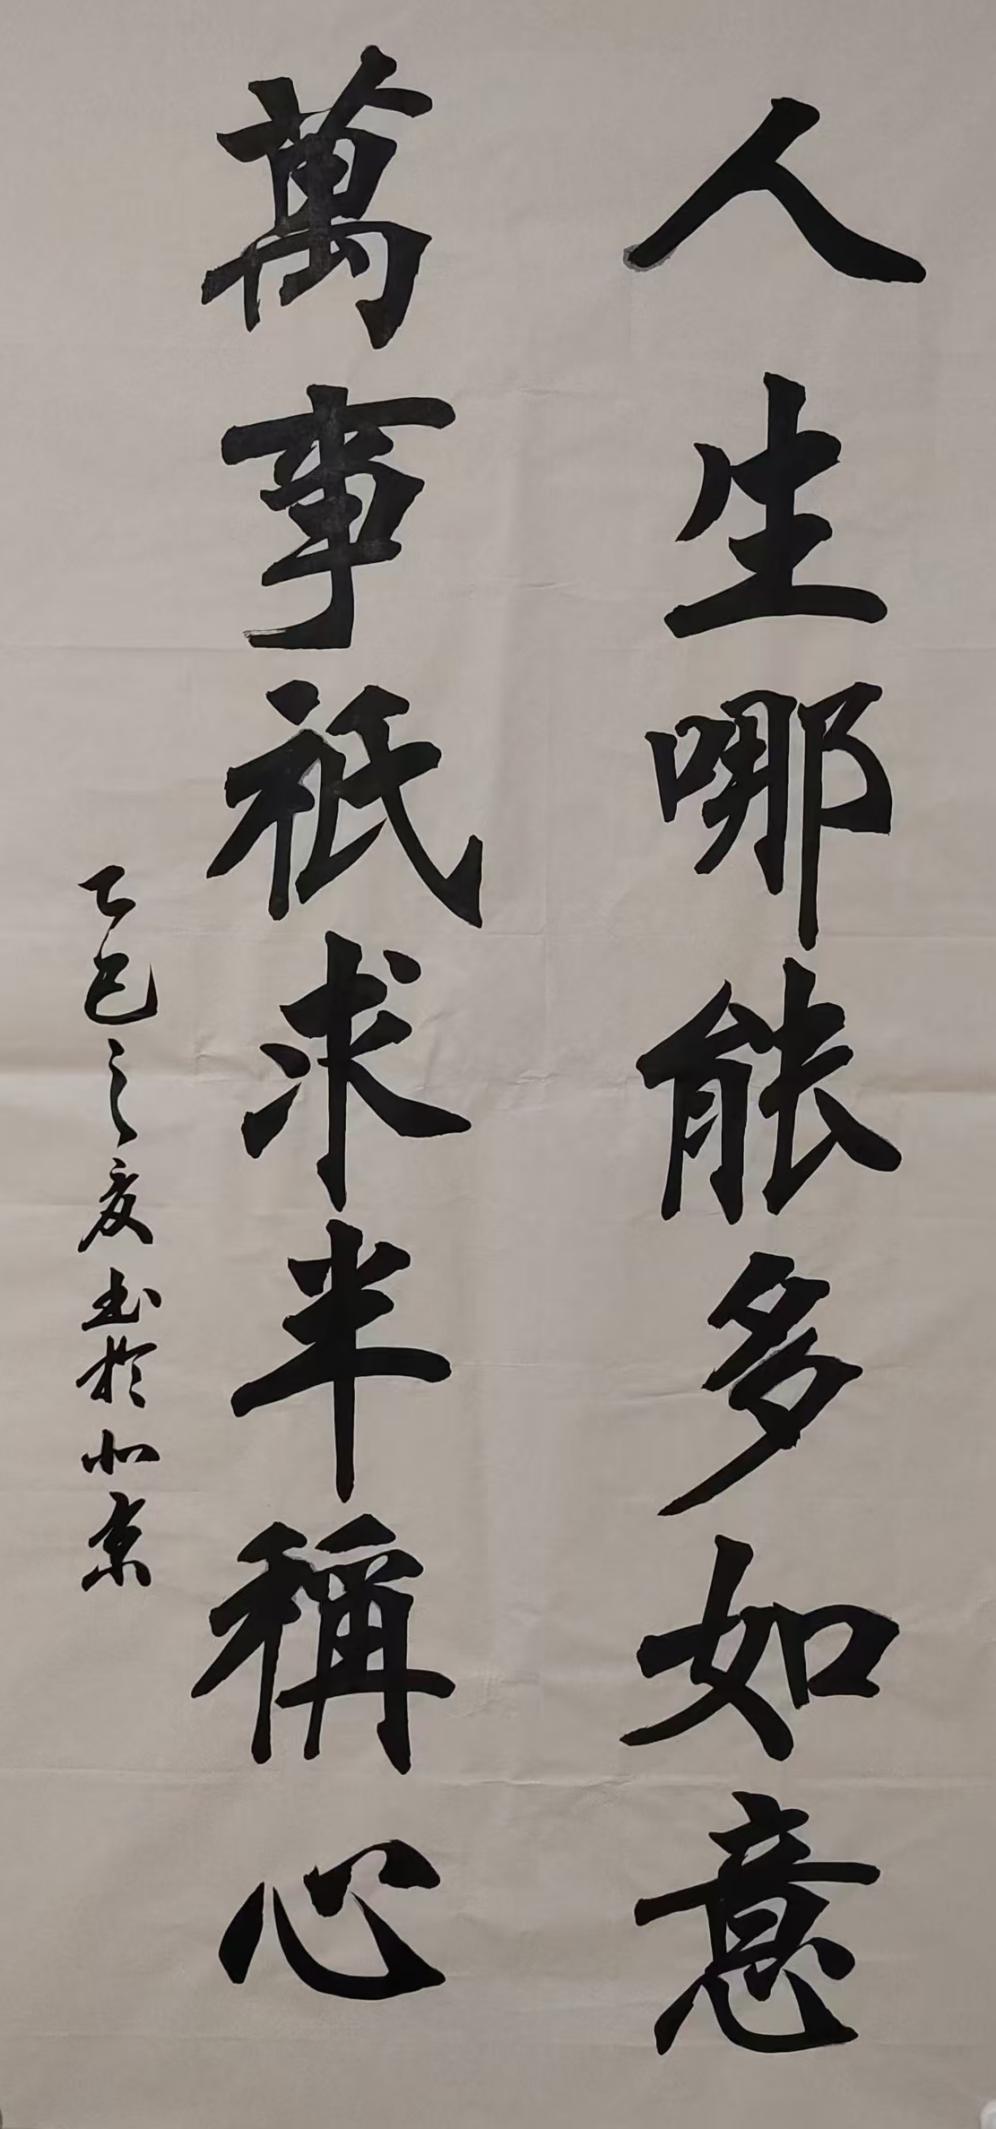 人生哪能多如意
萬事祇求半稱心
乙巳之夏书於北京